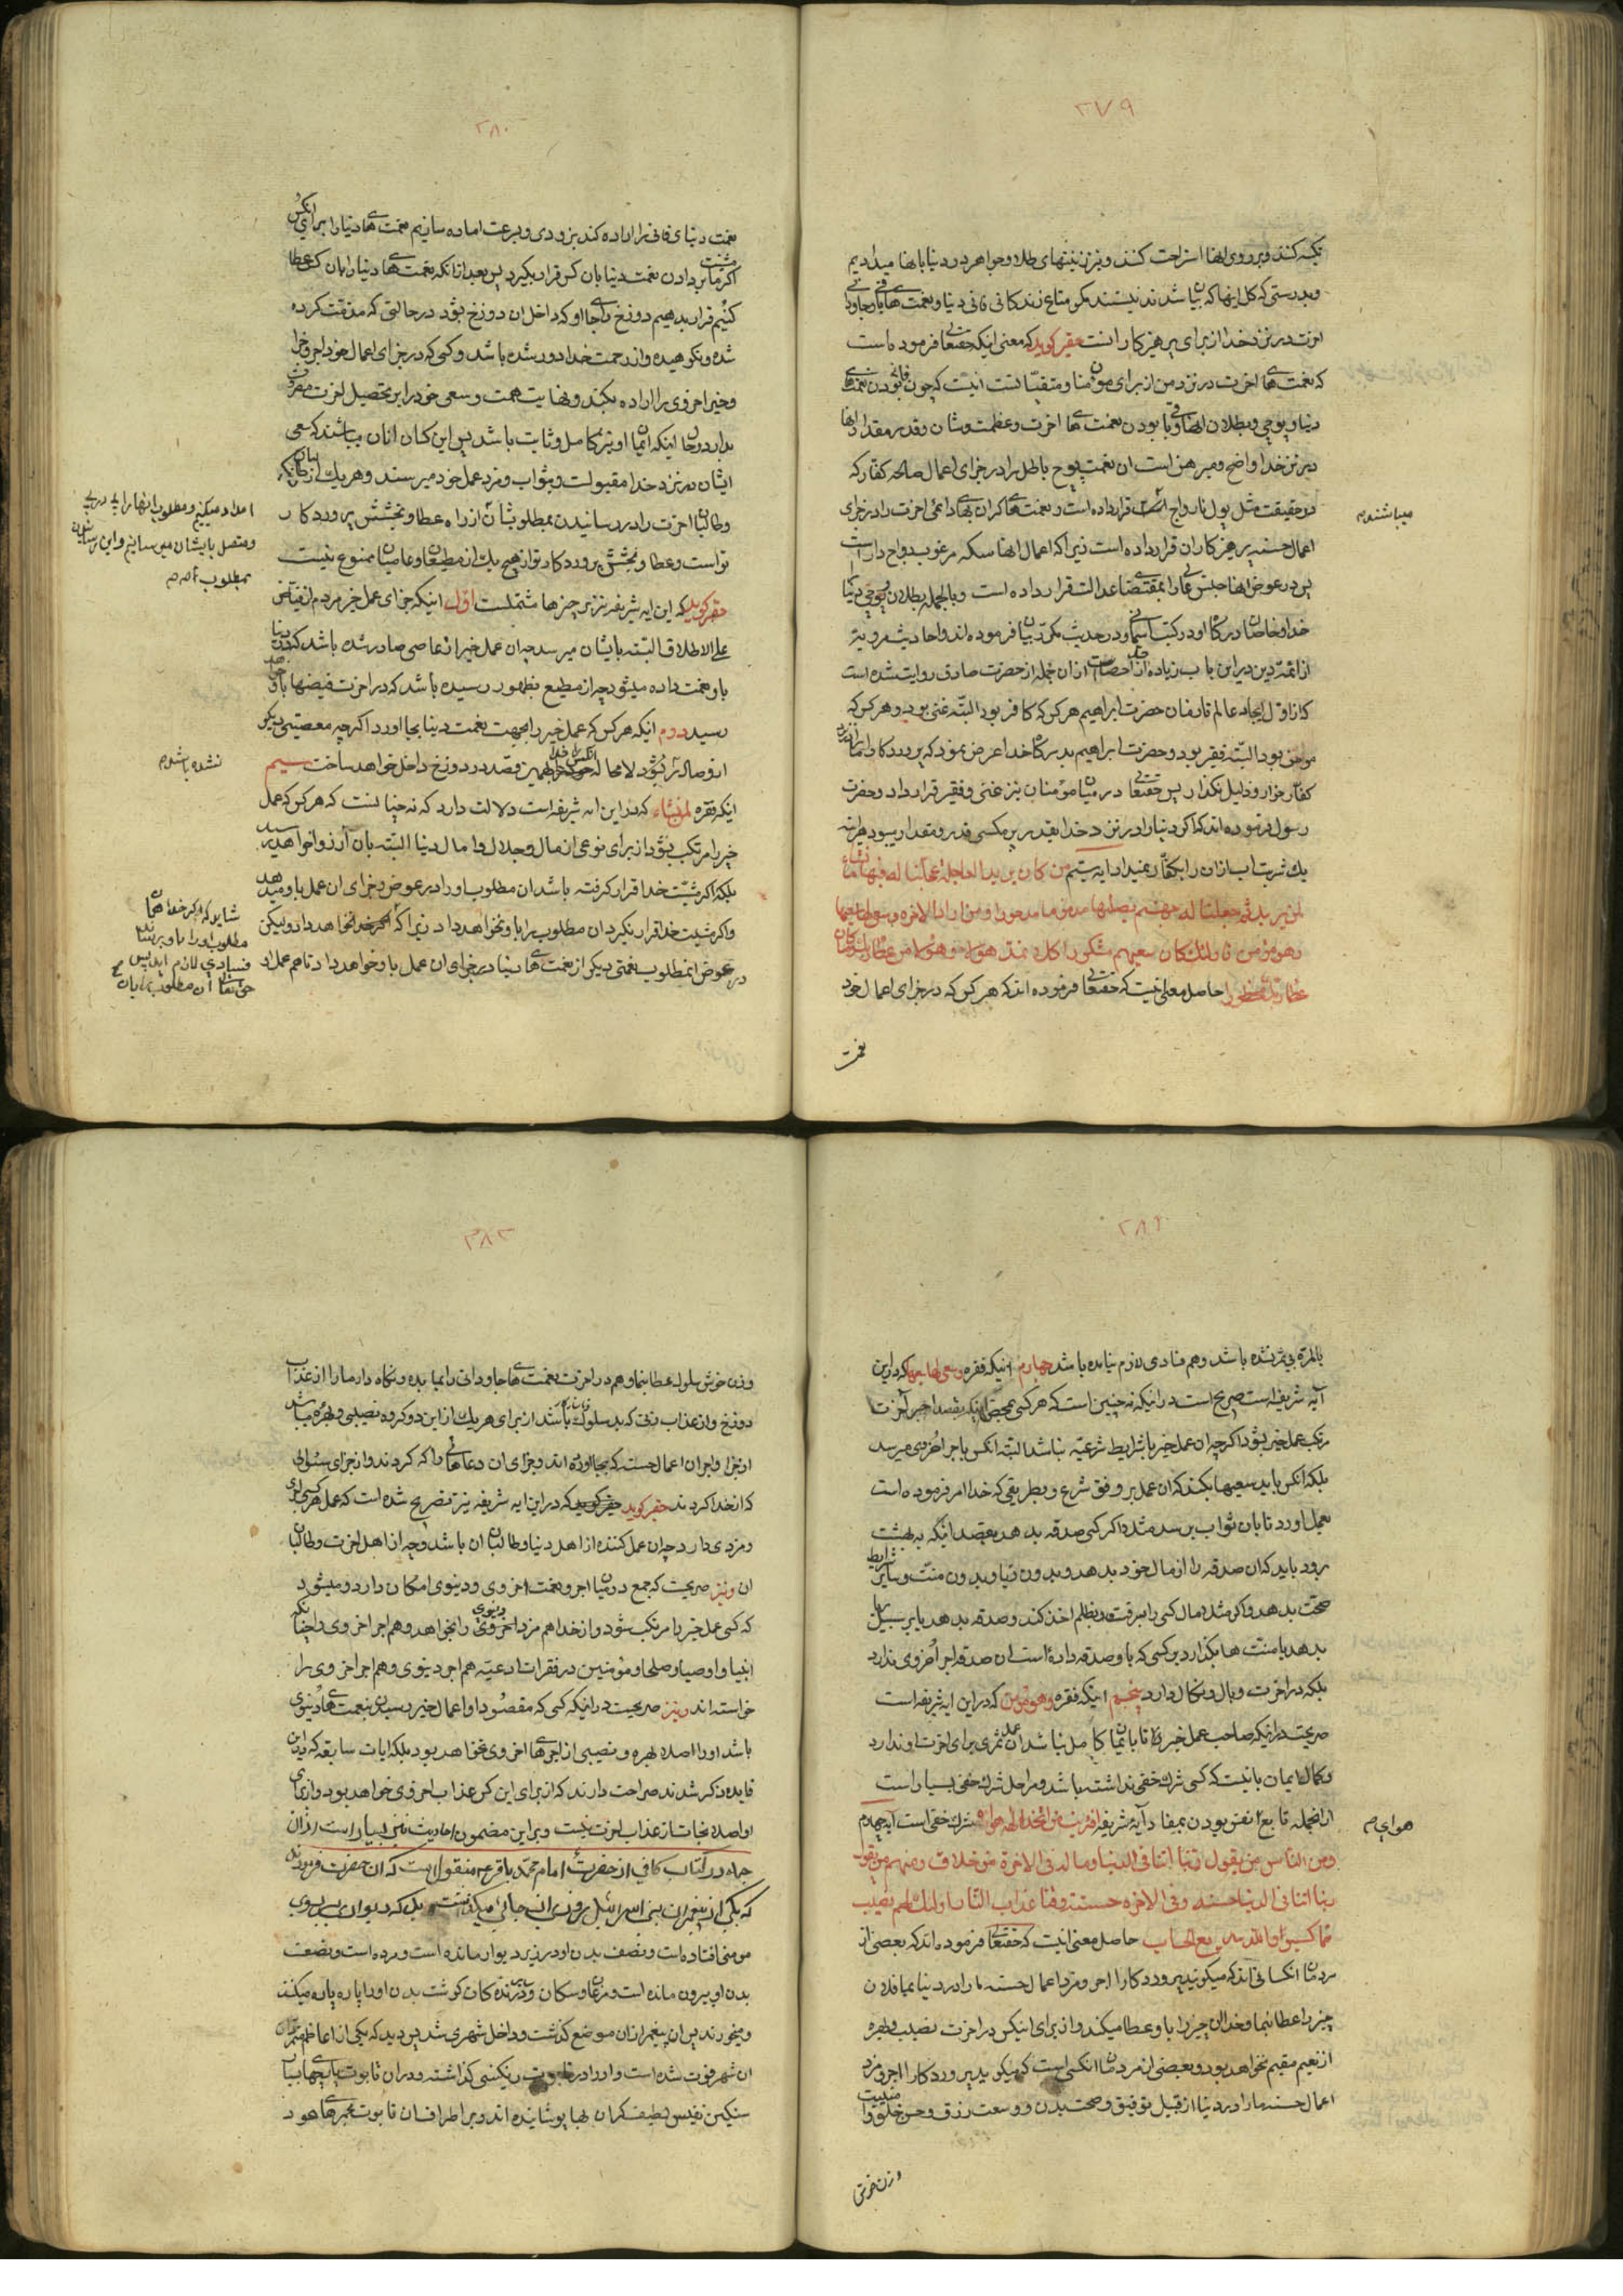 ٢٧٩
تکیه کنند و بر روی انها استراحت کنند و نیز زینتهای طلا و جواهر در دنیا بانها میدادیم
و بدرستی که کل اینها که بیان شدند نیستند مکر متاع زندکانی فانی دنیا و نعمت های باقی
اخرت در نزد خدا از برای پرهیزکارانست حقیر کوید که معنی اینکه حقتعالی فرموده است
که نعمت های اخرت در نزد من از برای مومنان و متقیانست اینست که چون فانی بودن نعمتهای
دنیا و پوچی و بطلان انها و باقی بودن نعمت های اخرت و عظمت و شان و قدر و مقدار انها
در نزد خدا واضح و مبرهن است ان نعمت پوچ باطل را در جزای اعمال صالحه کفار که
در حقیقت مثل پول نارواج است قرار داده است و نعمت های کران بهای دائمی اخرت را در جزای
میباشند م
اعمال حسنه پرهیزکاران قرار داده است زیرا که اعمال انها سکه مرغوب رواج دار است
پس در عوض انها جنس عالی را بمقتضای عدالت قرار داده است و بالجمله بطلان و پوچی دنیا
خدا و خاصان درکاه او در کتب اسمانی و در حدیث مکرر بیان فرموده اند و احادیث مرویه
از ائمه دین در این باب زیاده از حد احصاست از ان جمله از حضرت صادق روایت شده است
که از اول ایجاد عالم تا زمان حضرت ابراهیم هر کس که کافر بود البته غنی بود و هر کس که
مومن بود البته فقیر بود و حضرت ابراهیم بدرکاه خدا عرض نمود که پروردکارا ما را در نزد
کفار خوار و ذلیل نکذار پس حقتعالی در میان مومنان نیز غنی و فقیر قرار داد و حضرت
رسول فرموده اند که اکر دنیا را در نزد خدا بقدر پر مکسی قدر و مقدار میبود هر اینه
یک شربت اب از ان را بکفار نمیداد ایه سیم من کان یرید العاجلة عجلنا له فیها ما نشاء
لمن نرید ثم جعلنا له جهنم یصلیها مذموما مدحورا و من اراد الاخرة و سعی لها سعیها
و هو مؤمن فاولئک کان سعیهم مشکورا کلا نمد هؤلاء و هؤلاء من عطاء ربک و ما کان
عطاء ربک محظورا حاصل معنی اینست که حقتعالی فرموده اند که هر کس که در جزای اعمال خود
نعمت
٢٨٠
نعمت دنیای فانی را اراده کند بزودی و بسرعت اماده سازیم نعمت های دنیا را برای انکس
اکر مشیت ما بر دادن نعمت دنیا بان کس قرار بکیرد پس بعد از انکه نعمت های دنیا را بان کس عطا
کنیم قرار بدهیم دوزخ را جای او که داخل ان دوزخ بشود در حالتی که مذمت کرده
شده و نکوهیده و از رحمت خدا دور شده باشد و کسی که در جزای اعمال خود اجر و جزا
و خیر اخروی را اراده بکند و نهایت همت و سعی خود را بر تحصیل اخرت مصروف
بدارد و حال اینکه ایمان او نیز کامل و ثابت باشد پس این کسان انان میباشند که سعی
ایشان در نزد خدا مقبولست و بثواب و مزد عمل خود میرسند و هر یک از طالبان
و طالبان اخرت را در رسانیدن بمطلوبشان از راه عطا و بخشش پروردکار
امداد میکنیم و مطلوب انها را پی در پی
و متصل بایشان میرسانیم و این رسانیدن
بمطلوب م
تواست و عطا و بخشش پروردکار تو از هیچ یک از مطیعان و عاصیان ممنوع نیست
حقیر کوید که این ایه شریفه نیز بر چیزها مشتملست اول اینکه جزای عمل خیر مردم از فیاض
علی الاطلاق البته بایشان میرسد چه ان عمل خیر از عاصی صادر شده باشد که در دنیا
باو نعمت داده میشود چه از مطیع بظهور رسیده باشد که در اخرت فیضها باو
رسید دوم اینکه هر کس که عمل خیر را بجهت نعمت دنیا بجا اورد اکرچه معصیتی دیکر
از او صادر نشود لامحاله انکس را خدا بهمین قصد در دوزخ داخل خواهد ساخت سیم
نشده باشد م
اینکه فقره لمن نشاء که در این ایه شریفه است دلالت دارد که نه چنانست که هر کس که عمل
خیر را مرتکب بشود از برای نوعی از مال و جلال و امال دنیا البته بان آرزو خواهد رسید
بلکه اکر مشیت خدا قرار کرفته باشد ان مطلوب او را در عوض و جزای ان عمل باو میدهد
و اکر مشیت خدا قرار نکیرد ان مطلوب را باو نخواهد داد زیرا که خواهد داد و لیکن
در عوض ان مطلوب نعمتی دیکر از نعمت های دنیا در جزای ان عمل باو خواهد داد تا هم عمل او
شاید که اکر خدا همان
مطلوب او را باو برساند
فسادی لازم اید پس
حق تعالی ان مطلوب را بان
٢٨١
بالمرة بی ثمر نشده باشد و هم فسادی لازم نیامده باشد چهارم اینکه فقره وسعی لها سعیها که در این
آیه شریفه است صریح است در اینکه نه چنین است که هر کسی بمحض اینکه بقصد اجر آخرت
مرتکب عمل خیر بشود اکر چه ان عمل خیر با شرایط شرعیه نباشد البته انکس باجر اخروی میرسد
بلکه انکس باید سعیها بکند که ان عمل بر وفق شرع و بطریقی که خدا امر فرموده است
بعمل اورد تا بان ثواب برسد مثلا اکر کسی صدقه بدهد بقصد اینکه به بهشت
برود باید که ان صدقه را از مال خود بدهد و بدون ریا و بدون منت و سایر شرایط
صحت بدهد و اکر مثلا مال کسی را بسرقت و بظلم اخذ کند و صدقه بدهد یا بر سبیل ریا
بدهد یا منت ها بکذارد بر کسی که باو صدقه داده است ان صدقه اجر اخروی ندارد
بلکه در اخرت وبال و نکال دارد پنجم اینکه فقره وهو مؤمن که در این ایه شریفه است
صریحست در اینکه صاحب عمل خیر را تا با ایمان کامل نباشد ان عمل ثمری برای اخرت او ندارد
و کمال ایمان بانیست که کسی شرک خفی نداشته باشد و مراحل شرک خفی بسیار است
از انجمله تابع نفس بودن بمفاد آیه شریفه افرایت من اتخذ الهه هواه شرک خفی است آیه چهارم
هوای م
ومن الناس من یقول ربنا اتنا فی الدنیا وما له فی الاخرة من خلاق ومنهم من یقول
ربنا اتنا فی الدنیا حسنه وفی الاخره حسنة وقنا عذاب النار اولئک لهم نصیب
مما کسبوا والله سریع الحساب حاصل معنی اینست که حقتعالی فرموده اند که بعضی از
مردمان انکسانی اند که میکویند پروردکارا اجر و مزد اعمال حسنه ما را در دنیا بما فلان
چیز را عطا نما و خدا ان چیز را باو عطا میکند و از برای اینکس در اخرت نصیب و بهره
از نعیم مقیم نخواهد بود و بعضی از مردمان انکسی است که میکوید پروردکارا اجر و مزد
اعمال حسنه ما را در دنیا از قبیل توفیق و صحت بدن و وسعت رزق و حسن خلق و
و زن خوش
٢٨٢
و زن خوش سلوک عطا بنما و هم در اخرت نعمت های جاودانی را بما بده و نکاه دار ما را از عذاب
دوزخ و از عذاب زنی که بد سلوک باشد از برای هر یک از این دو کروه نصیبی و بهره میباشد
از جزا و اجر ان اعمال حسنه که بجا اورده اند و جزای ان دعاهائی را که کردند و از جزای سئوالی
که از خدا کردند حقیر کوید که در این ایه شریفه نیز تصریح شده است که عمل هر کسی اجری
و مزدی دارد چه ان عمل کننده از اهل دنیا و طالبان ان باشد و چه از اهل اخرت و طالبان
ان و نیز صریحست که جمع در میان اجر و نعمت اخروی و دنیوی امکان دارد و میشود
که کسی عمل خیر را مرتکب شود و از خدا هم مزد دنیوی را بخواهد و هم اجر اخروی را چنانکه
انبیا و اوصیا و صلحا و مؤمنین در فقرات ادعیه هم اجر دنیوی و هم اجر اخروی را
خواسته اند و نیز صریحست در اینکه کسی که مقصود او از اعمال خیر رسیدن بنعمت های دنیوی
باشد او را اصلا بهره و نصیبی از اجرهای اخروی نخواهد بود بلکه ایات سابقه که در این
فایده ذکر شدند صراحت دارند که از برای این کس عذاب اخروی خواهد بود و از برای
او اصلا نجات از عذاب اخرت نیست و بر این مضمون احادیث نیز بسیار است از ان
جمله در کتاب کافی از حضرت امام محمد باقر ع منقول است که ان حضرت فرمودند
که یکی از پیغمبران بنی اسرائیل روزی از جائی میکذشت دید که دیوار بر روی
مومنی افتاده است و نصف بدن او در زیر دیوار مانده است و مرده است و نصف
بدن او بیرون مانده است و مرغان و سکان و درندکان کوشت بدن او را پاره پاره میکنند
و میخورند پس ان پیغمبر از ان موضع کذشت و داخل شهری شد پس دید که یکی از اعاظم
ان شهر فوت شده است و او را در تابوت رنکینی کذاشته و در ان تابوت پارچهای
سنکین نفیس لطیف کران بها پوشانیده اند و بر اطراف ان تابوت مجمرهای عود